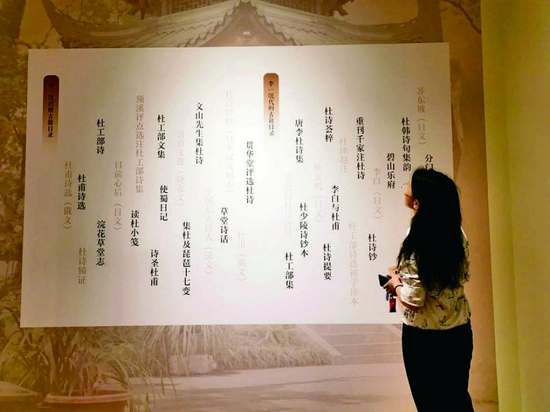 分门
苏东坡（日文）
杜韩诗句集韵
碧山乐府
重刊千家注杜诗
杜诗钞
杜律赵注
李白（日文）
杜工部诗选初学读本
杜诗荟粹
李白与杜甫
杜诗提要
唐李杜诗集
杜少陵诗钞本
杜工部集
李一氓代购古籍目录
贯华堂评选杜诗
草堂诗话
文山先生集杜诗
集杜及琵琶十七变
杜工部文集
使蜀日记
诗圣杜甫
须溪评点选注杜工部诗集
读杜小笺
目前心后（日文）
杜工部诗
浣花草堂志
杜甫诗选
杜甫诗选（俄文）